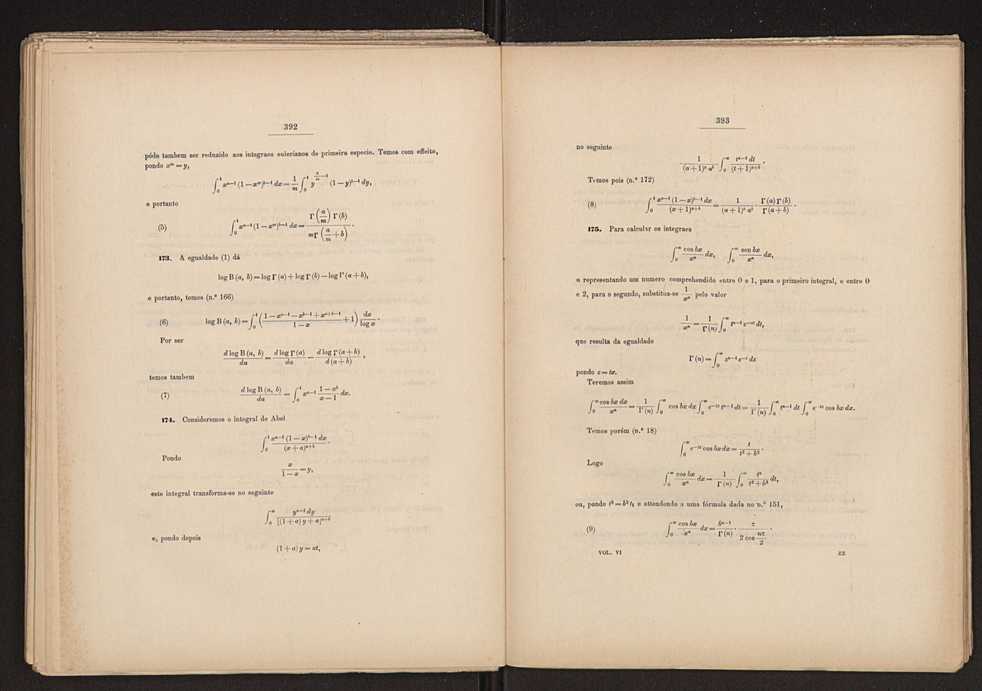 392
póde tambem ser reduzido aos integraes eulerianos de primeira especie. Temos com effeito,
pondo xᵐ = y,
∫₀¹ xᵃ⁻¹ (1 — xᵐ)ᵇ⁻¹ dx = 1/m ∫₀¹ y^(a/m — 1) (1 — y)ᵇ⁻¹ dy,
e portanto
(5) ∫₀¹ xᵃ⁻¹ (1 — xᵐ)ᵇ⁻¹ dx = Γ(a/m) Γ(b) / mΓ(a/m + b) .
173. A egualdade (1) dá
log B (a, b) = log Γ (a) + log Γ (b) — log Γ (a + b),
e portanto, temos (n.º 166)
(6) log B (a, b) = ∫₀¹ ( (1 — xᵃ⁻¹ — xᵇ⁻¹ + xᵃ⁺ᵇ⁻¹) / (1 — x) + 1 ) dx / log x .
Por ser
d log B (a, b) / da = d log Γ (a) / da — d log Γ (a + b) / d (a + b) ,
temos tambem
(7) d log B (a, b) / da = ∫₀¹ xᵃ⁻¹ (1 — xᵇ) / (x — 1) dx.
174. Consideremos o integral de Abel
∫₀¹ xᵃ⁻¹ (1 — x)ᵇ⁻¹ dx / (x + a)ᵃ⁺ᵇ .
Pondo
x / (1 — x) = y,
este integral transforma-se no seguinte
∫₀^∞ yᵃ⁻¹ dy / [(1 + a) y + a]ᵃ⁺ᵇ
e, pondo depois
(1 + a) y = at,
393
no seguinte
1 / (a + 1)ᵃ aᵇ ∫₀^∞ tᵃ⁻¹ dt / (t + 1)ᵃ⁺ᵇ .
Temos pois (n.º 172)
(8) ∫₀¹ xᵃ⁻¹ (1 — x)ᵇ⁻¹ dx / (x + 1)ᵃ⁺ᵇ = 1 / (a + 1)ᵃ aᵇ · Γ (a) Γ (b) / Γ (a + b) .
175. Para calcular os integraes
∫₀^∞ cos bx / xⁿ dx, ∫₀^∞ sen bx / xⁿ dx,
n representando um numero comprehendido entre 0 e 1, para o primeiro integral, e entre 0
e 2, para o segundo, substitua-se 1/xⁿ pelo valor
1/xⁿ = 1/Γ (n) ∫₀^∞ tⁿ⁻¹ e⁻ᵗˣ dt,
que resulta da egualdade
Γ (n) = ∫₀^∞ zⁿ⁻¹ e⁻ᶻ dz
pondo z = tx.
Teremos assim
∫₀^∞ cos bx dx / xⁿ = 1/Γ (n) ∫₀^∞ cos bx dx ∫₀^∞ e⁻ᵗˣ tⁿ⁻¹ dt = 1/Γ (n) ∫₀^∞ tⁿ⁻¹ dt ∫₀^∞ e⁻ᵗˣ cos bx dx.
Temos porém (n.º 18)
∫₀^∞ e⁻ᵗˣ cos bx dx = t / (t² + b²) .
Logo
∫₀^∞ cos bx / xⁿ dx = 1/Γ (n) ∫₀^∞ tⁿ / (t² + b²) dt,
ou, pondo t² = b² t₁ e attendendo a uma fórmula dada no n.º 151,
(9) ∫₀^∞ cos bx / xⁿ dx = bⁿ⁻¹ / Γ (n) · π / 2 cos (nπ/2) .
VOL. VI